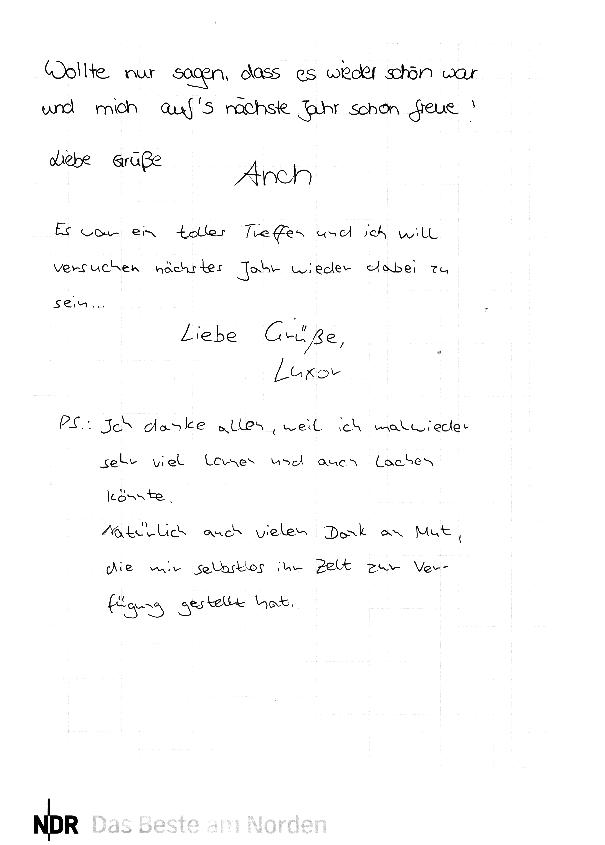 Wollte nur sagen, dass es wieder schön war
und mich auf's nächste Jahr schon freue!
Liebe Grüße
Anch
Es war ein tolles Treffen und ich will
versuchen nächstes Jahr wieder dabei zu
sein...
Liebe Grüße,
Luxor
PS.: Ich danke allen, weil ich malwieder
sehr viel lernen und auch Lachen
könnte.
Natürlich auch vielen Dank an Mut,
die mir selbstlos ihr Zelt zur Ver-
fügung gestellt hat.
NDR Das Beste am Norden